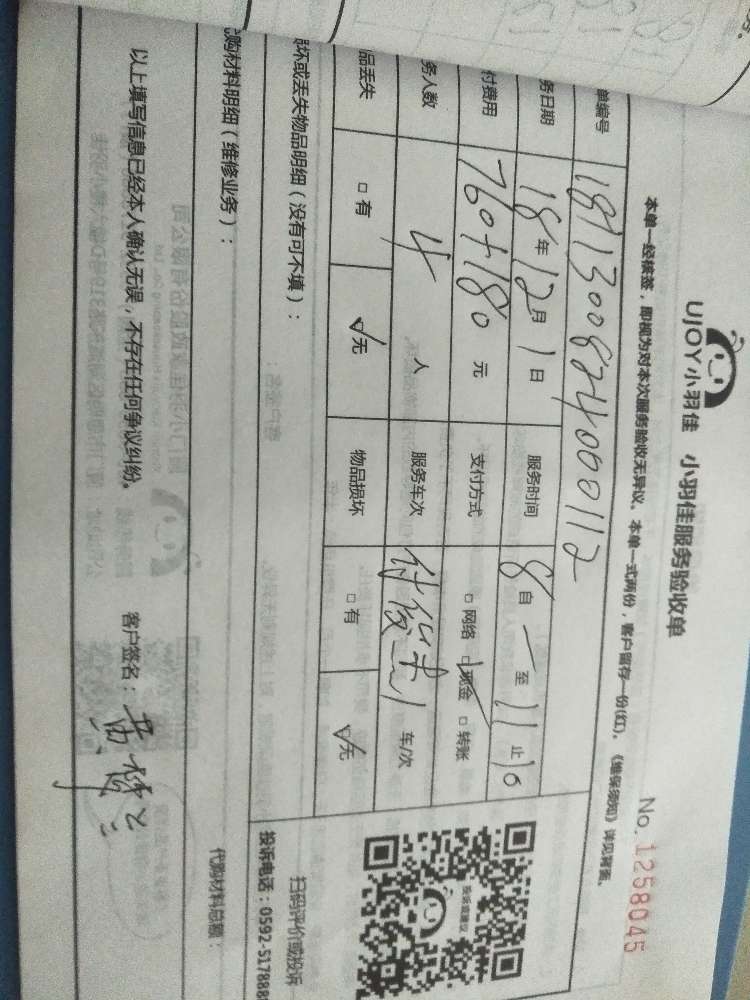 UJOY小羽佳 小羽佳服务验收单
No. 1258045
本单一经核签，即视为对本次服务验收无异议。本单一式两份，客户留存一份(红)。《维保须知》详见背面。
单编号 181130082400112
务日期 18年12月1日 服务时间 8自一至11止10
付费用 760+180元 支付方式 □网络 ☑现金 □转账
务人数 4人 服务车次 1车/次
品丢失 □有 ☑无 物品损坏 □有 ☑无
损坏或丢失物品明细（没有可不填）：
代购材料明细（维修业务）：
代购材料总额：
扫码评价或投诉
投诉电话：0592-5178888
以上填写信息已经本人确认无误，不存在任何争议纠纷。 客户签名：